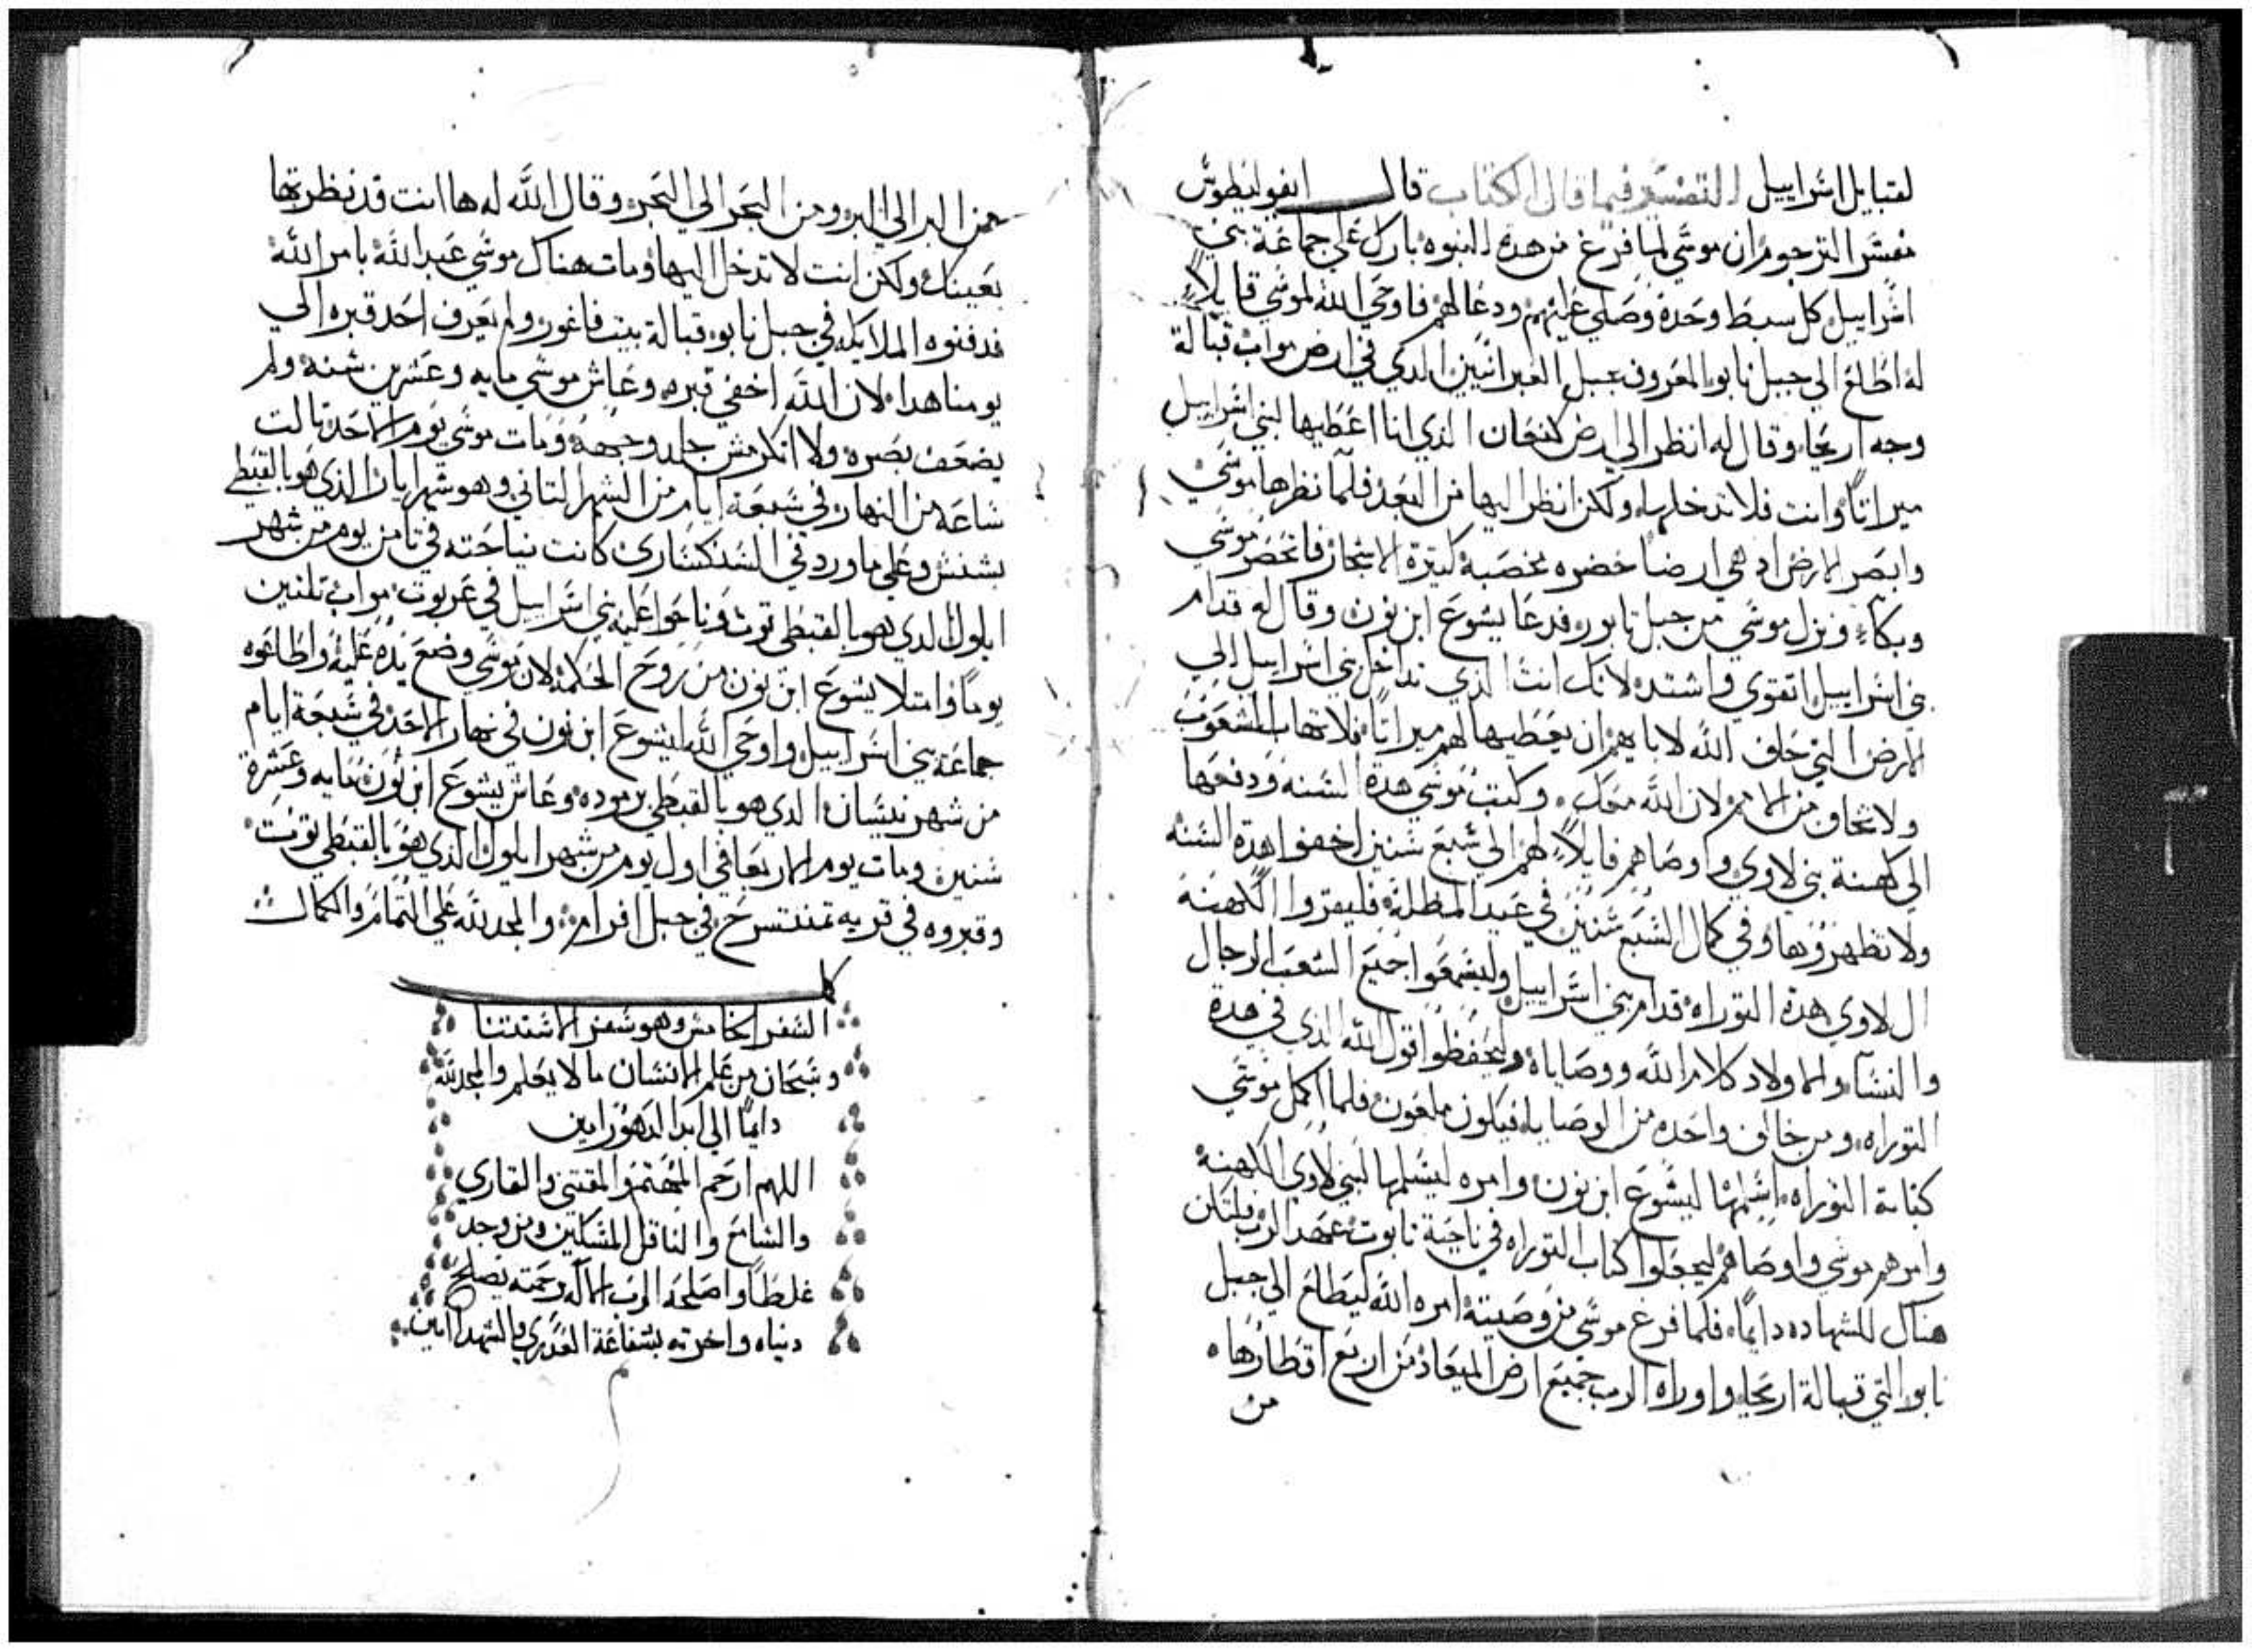 لقبايل اسراييل التفسير فيما قال الكتاب قال ابفوليطوس
مفسر الترجوم ان موسي لما فرغ من هده النبوه بارك علي جماعة بني
اسراييل كل سبط وحده وصلي عليهم ودعا لهم فاوحي الله لموسي قايلاً
له اطلع الي جبل نابو المعروف بجبل العبرانيين الدي في ارض مواب قبالة
وجه اريحا وقال له انظر الي ارض كنعان الذي انا اعطيها لبني اسراييل
ميراتاً وانت فلا تدخلها ولكن انظر اليها من البعد فلما نظرها موسي
وابصر الارض اد هي ارضاً خضره مخصبه كتيرة الاشجار فاتحصر موسي
وبكاء ونزل موسي من جبل نابو ودعا يشوع ابن نون وقال له قدام
بني اسراييل اتقوي واشتد لانك انت الذي تداخل بني اسراييل الي
الارض التي حلف الله لابايهم ان يعطيها لهم ميراتاً فلا تهاب الشعوب
ولا تخاف من الامم لان الله معك وكتب موسي هده السنه ودفعها
الي كهنة بني لاوي واوصاهم قايلاً لهم الي سبع سنين اخفوا هده السنه
ولا تظهروها وفي كمال السبع سنين في عيد المظلة فليقروا الكهنه
ال لاوي هده التوراه قدام بني اسراييل وليسمعوا جميع الشعب الرجال
والنساء والاولاد كلام الله ووصاياه وليحفظوا قول الله الذي في هدة
التوراه ومن خالف واحده من الوصايا فيكون ملعون فلما اكمل موسي
كتابة التوراه اسلمها ليشوع ابن نون وامره ليسلمها لبني لاوي الكهنه
وامرهم موسي واوصاهم ليجعلوا كتاب التوراه في ناحية تابوت عهد الرب لتكن
هناك للشهاده دايماً فلما فرغ موسي من وصيته امره الله ليطالع الي جبل
نابو التي قبالة اريحا واوراه الرب جميع ارض الميعاد من اربع اقطارها
من
من البر الي البر ومن البحر الي البحر وقال الله له ها انت قد نظرتها
بعينك ولكن انت لا تدخل اليها ومات هناك موسي عبد الله بامر الله
فدفنوه الملايكه في جبل نابو قبالة بيت فاغور ولم يعرف احد قبره الي
يومنا هدا لان الله اخفي قبره وعاش موسي مايه وعشرين سنه ولم
يضعف بصره ولا انكرمش جلد وجهه ومات موسي يوم الاحد تالت
ساعه من النهار في سبعة ايام من الشهر التاني وهو شهر ايار الذي هو بالقبطي
بشنس وعلي ما ورد في السنكساري كانت نياحته في تامن يوم من شهر
ايلول الدي هو بالقبطي توت وناحوا عليه بني اسراييل في عربوت مواب تلتين
يوماً وامتلا يشوع ابن نون من روح الحكمه لان موسي وضع يده عليه واطاعوه
جماعة بني اسراييل واوحي الله ليشوع ابن نون في نهار الاحد في سبعة ايام
من شهر نيسان الدي هو بالقبطي برموده وعاش يشوع ابن نون مايه وعشرة
سنين ومات يوم الاربعا في اول يوم من شهر ايلول الذي هو بالقبطي توت
وقبروه في قريه تمنتسرح في جبل افرام والمجد لله علي التمام والكمال
كمل
السفر الخامس وهو سفر الاستتنا
وسبحان من علم الانسان ما لا يعلم والمجد لله
دايماً الي ابد الدهور امين
اللهم ارحم المهتم والمقتني والقاري
والسامع والناقل المسكين ومن وجد
غلطاً واصلحه الرب الاله برحمته يصلح
دنياه واخرته بشفاعة العدري والشهدا امين